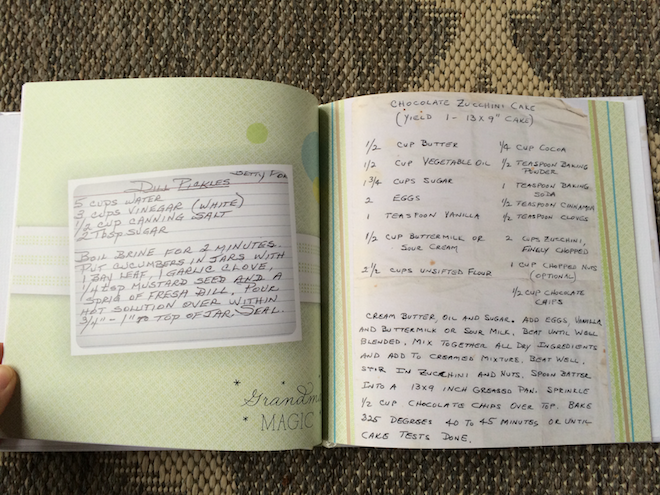 Betty
Dill Pickles
5 cups water
3 cups vinegar (white)
1/2 cup canning salt
2 tbsp sugar
Boil brine for 2 minutes.
Put cucumbers in jars with
1 bay leaf, 1 garlic clove,
1/4 tsp mustard seed and a
sprig of fresh dill. Pour
hot solution over within
3/4" - 1" to top of jar. Seal.
MAGIC
CHOCOLATE ZUCCHINI CAKE
(YIELD 1 - 13 X 9" CAKE)
1/2 CUP BUTTER
1/2 CUP VEGETABLE OIL
1 3/4 CUPS SUGAR
2 EGGS
1 TEASPOON VANILLA
1/2 CUP BUTTERMILK OR
SOUR CREAM
2 1/2 CUPS UNSIFTED FLOUR
1/4 CUP COCOA
1/2 TEASPOON BAKING
POWDER
1 TEASPOON BAKING
SODA
1/2 TEASPOON CINNAMON
1/2 TEASPOON CLOVES
2 CUPS ZUCCHINI,
FINELY CHOPPED
1 CUP CHOPPED NUTS
(OPTIONAL)
1/2 CUP CHOCLATE
CHIPS
CREAM BUTTER, OIL AND SUGAR. ADD EGGS, VANILLA
AND BUTTERMILK OR SOUR MILK. BEAT UNTIL WELL
BLENDED. MIX TOGETHER ALL DRY INGREDIENTS
AND ADD TO CREAMED MIXTURE. BEAT WELL.
STIR IN ZUCCHINI AND NUTS. SPOON BATTER
INTO A 13X9 INCH GREASED PAN. SPRINKLE
1/2 CUP CHOCOLATE CHIPS OVER TOP. BAKE
325 DEGREES 40 TO 45 MINUTES OR UNTIL
CAKE TESTS DONE.